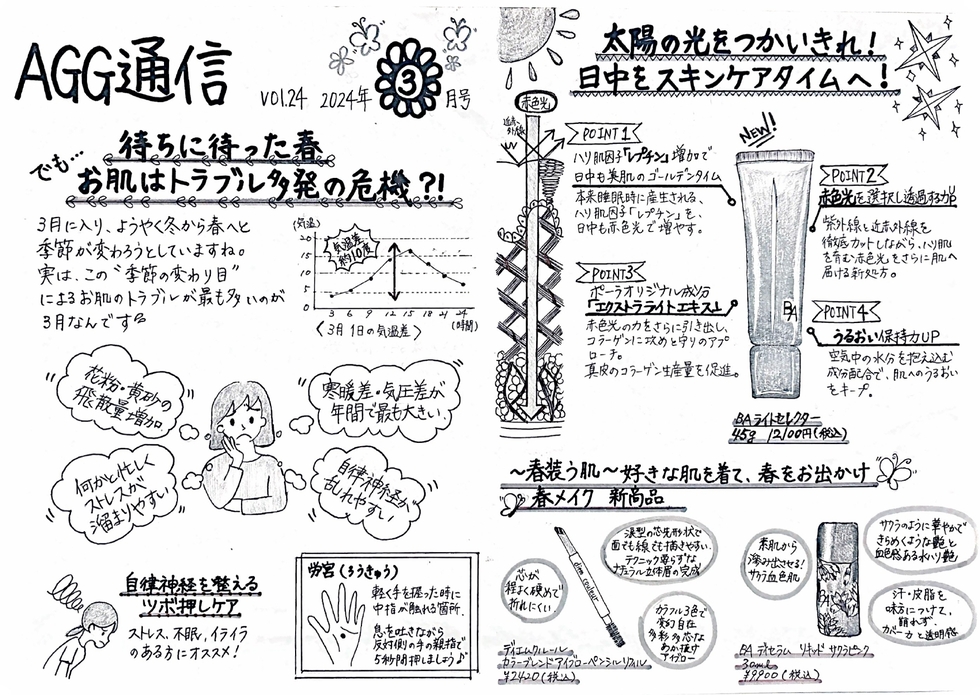 AGG通信
vol.24 2024年 3 月号
でも…
待ちに待った春
お肌はトラブル多発の危機?!
3月に入り、ようやく冬から春へと
季節が変わろうとしていますね。
実は、この“季節の変わり目”
によるお肌のトラブルが最も多いのが
3月なんです
(気温)
20
15
10
5
0
気温差
約10度
3 6 9 12 15 18 21 24
(時間)
〈3月1日の気温差〉
花粉・黄砂の
飛散量増加
寒暖差・気圧差が
年間で最も大きい
何かと忙しく
ストレスが
溜まりやすい
自律神経が
乱れやすい
自律神経を整える
ツボ押しケア
ストレス、不眠、イライラ
のある方にオススメ!
労宮(ろうきゅう)
軽く手を握った時に
中指が触れる箇所。
息を吐きながら
反対側の手の親指で
5秒間押しましょう♪
太陽の光をつかいきれ!
日中をスキンケアタイムへ!
赤色光
近赤外線
UV
POINT1
ハリ肌因子「レプチン」増加で
日中も美肌のゴールデンタイム
本来睡眠時に産生される、
ハリ肌因子「レプチン」を、
日中も赤色光で増やす。
NEW!
POINT2
赤色光を選択し透過する力UP
紫外線と近赤外線を
徹底カットしながら、ハリ肌
を育む赤色光をさらに肌へ
届ける新処方。
POINT3
ポーラオリジナル成分
「エクストラライトエキス」
赤色光の力をさらに引き出し、
コラーゲンに攻めと守りのアプ
ローチ。
真皮のコラーゲン生産量を促進。
BA
POINT4
うるおい保持力UP
空気中の水分を抱え込む
成分配合で、肌へのうるおい
をキープ。
BA ライトセレクター
45g 12100円(税込)
〜春装う肌〜好きな肌を着て、春をお出かけ
春メイク 新商品
芯が
程よく硬めで
折れにくい
涙型の芯先形状で
面でも線でも描きやすい。
テクニック要らずな
ナチュラル立体眉の完成
カラフル3色で
変幻自在
多彩多芯な
あか抜け
アイブロー
diem couleur
ディエムクルール
カラーブレンドアイブローペンシルリフィル
¥2420(税込)
素肌から
滲み出させる!
サクラ血色肌
サクラのように華やかで
きらめくような艶と
血色感ある水ハリ艶
汗・皮脂を
味方につけて、
崩れず、
カバー力と透明感
BA
BA デセラム リキッド サクラピンク
30ml
¥9900(税込)